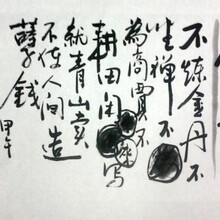 不煉金丹不
坐禪不
為商賈不
耕田閑來寫
就青山賣
不使人間造
孽錢 甲午